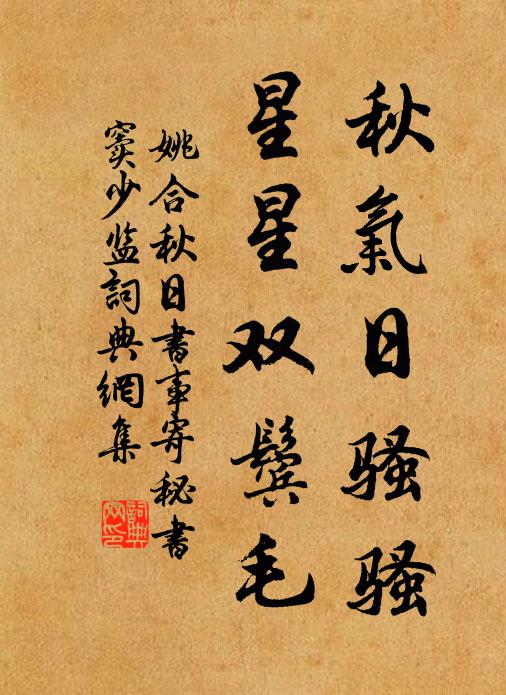 秋氣日骚骚
星星双鬓毛
姚合秋日書事寄秘書
窦少监詞典網集
詞典网印